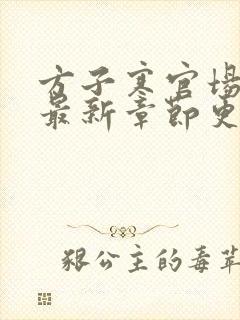 方子寒官场
最新章节更
狠公主的毒苹